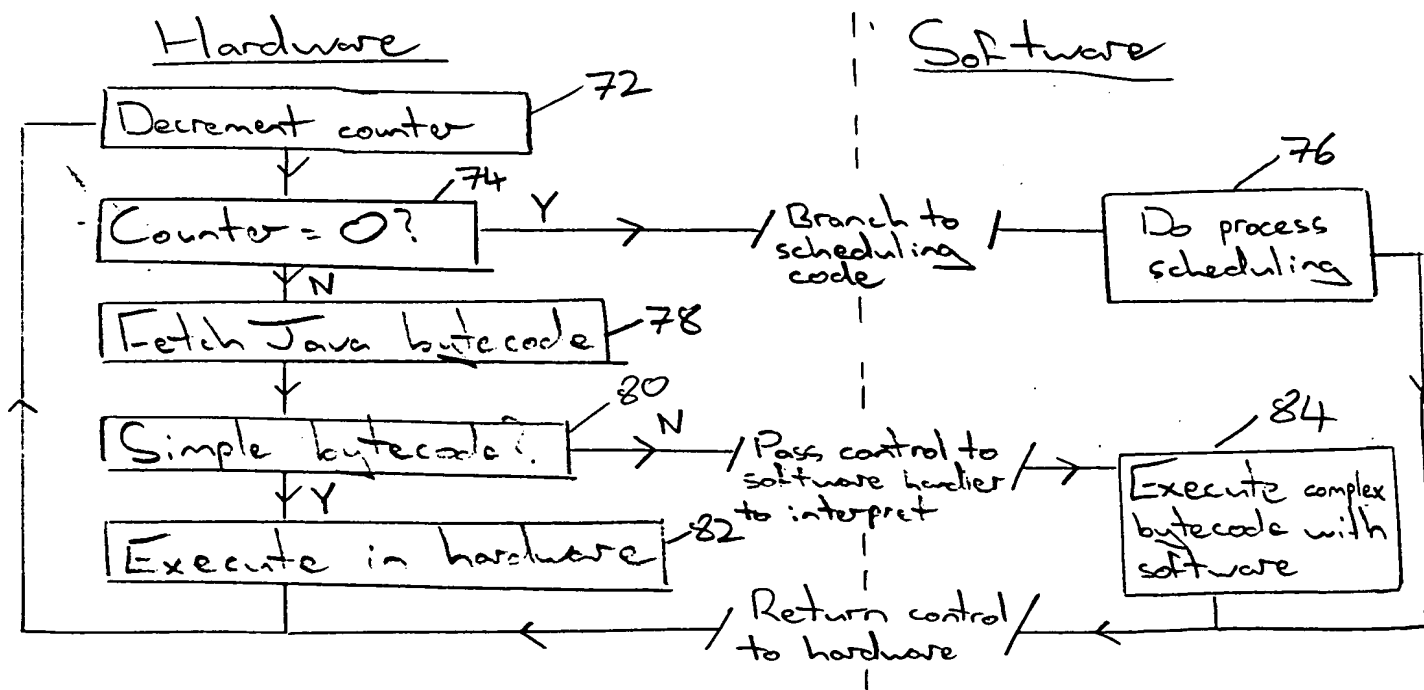 Hardware
Software
72
Decrement counter
74
76
Counter = 0?
Y
Branch to
scheduling
code
Do process
scheduling
N
Fetch Java bytecode
78
80
Simple bytecode?
N
Pass control to
software handler
to interpret
84
Execute complex
bytecode with
software
Y
Execute in hardware
82
Return control
to hardware